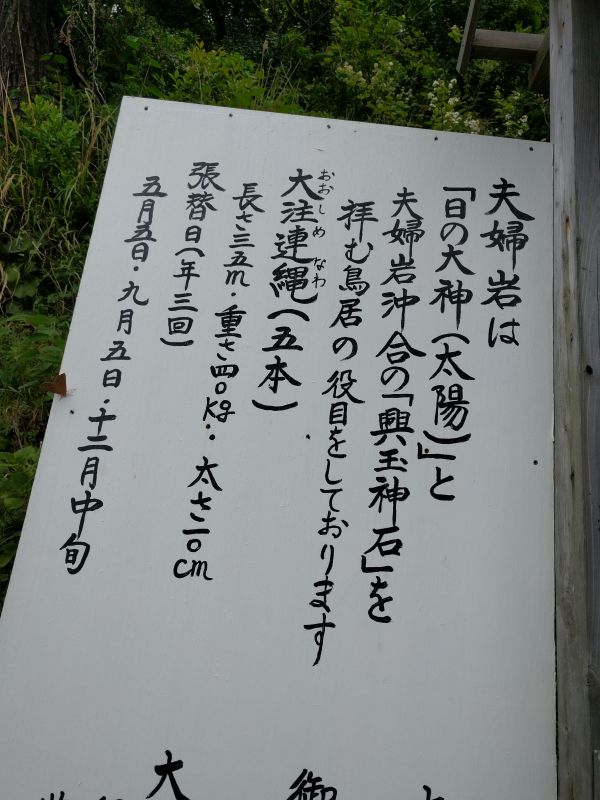 夫婦岩は
「日の大神(太陽)」と
夫婦岩沖合の「興玉神石」を
拝む鳥居の役目をしております
大注連縄(五本)
おおしめなわ
長さ三五m・重さ四〇kg・太さ一〇cm
張替日(年三回)
五月五日・九月五日・十二月中旬
御
大